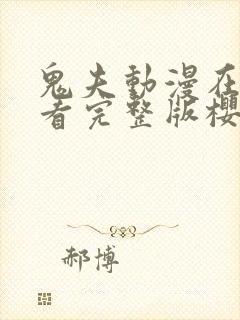 鬼夫動漫在
看完整版櫻
郝博